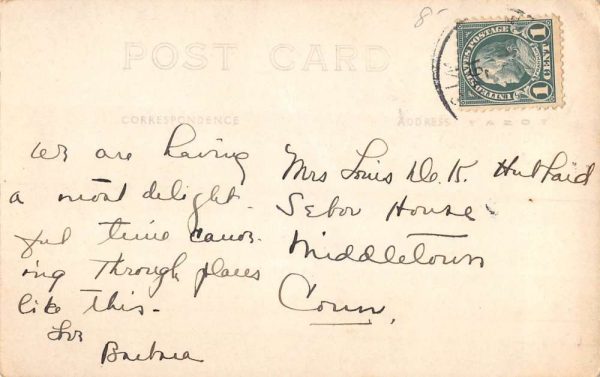 POST CARD
CORRESPONDENCE
ADDRESS
UNITED STATES POSTAGE
1 CENT 1
We are having
a most delight-
ful time canoe-
ing through places
like this-
Love
Barbara
Mrs Louis De K. Hubbard
Sebor House
Middletown
Conn.